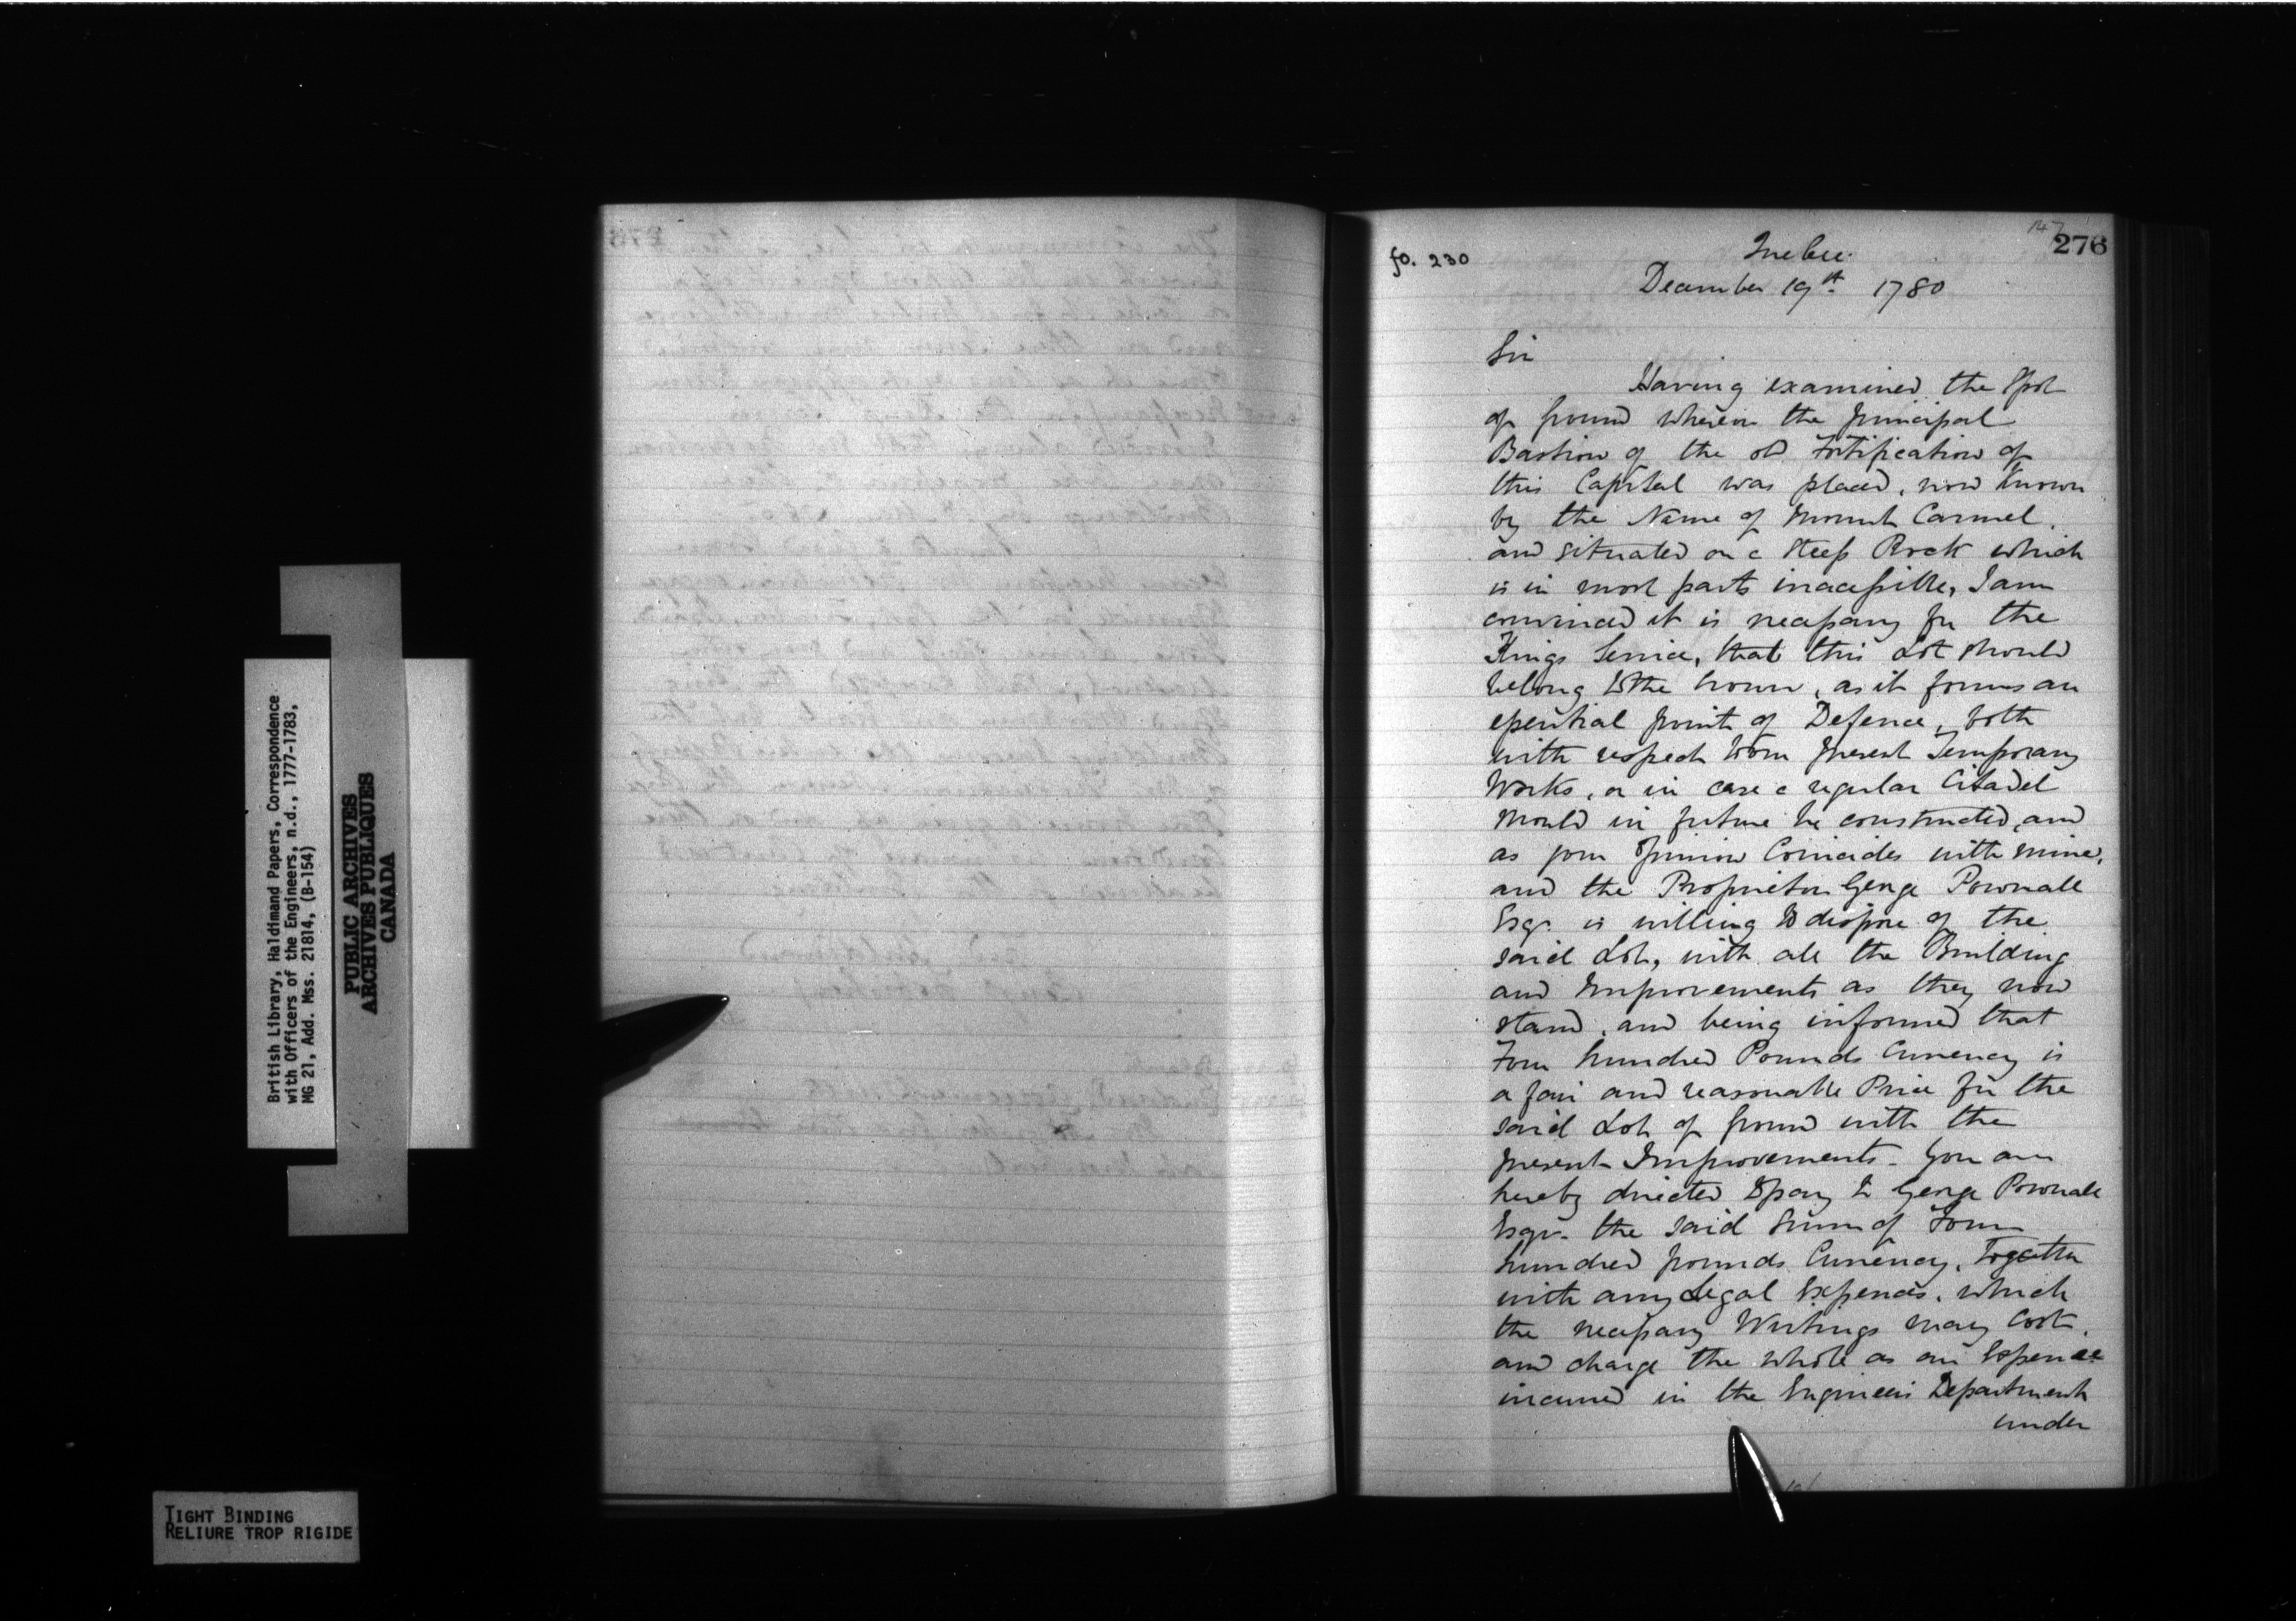 British Library, Haldimand Papers, Correspondence
with Officers of the Engineers, n.d., 1777-1783,
MG 21, Add. Mss. 21814, (B-154)
PUBLIC ARCHIVES
ARCHIVES PUBLIQUES
CANADA
TIGHT BINDING
RELIURE TROP RIGIDE
147
276
fo. 230
Quebec.
December 19th 1780
Sir
Having examined the Spot
of Ground wherein the principal
Bastion of the old Fortification of
this Capital was placed, now known
by the Name of Mount Carmel,
and situated on a steep Rock which
is in most parts inacessible, I am
convinced it is necessary for the
Kings Service, that this Lot should
belong to the Crown, as it forms an
essential point of Defence, both
with respect to our present Temporary
Works, or in case a regular Citadel
should in future be constructed, and
as your Opinion Coincides with mine,
and the Proprietor George Pownall
Esqr. is willing to dispose of the
said Lot, with all the Building
and Improvements as they now
stand, and being informed that
Four hundred Pounds Currency is
a fair and reasonable Price for the
said Lot of Ground with the
present Improvements. You are
hereby directed to pay to George Pownall
Esqr. the said Sum of Four
hundred pounds Currency, Together
with any Legal Expences, which
the necessary Writings may Cost,
and charge the whole as an Expence
incurred in the Engineers Department
under